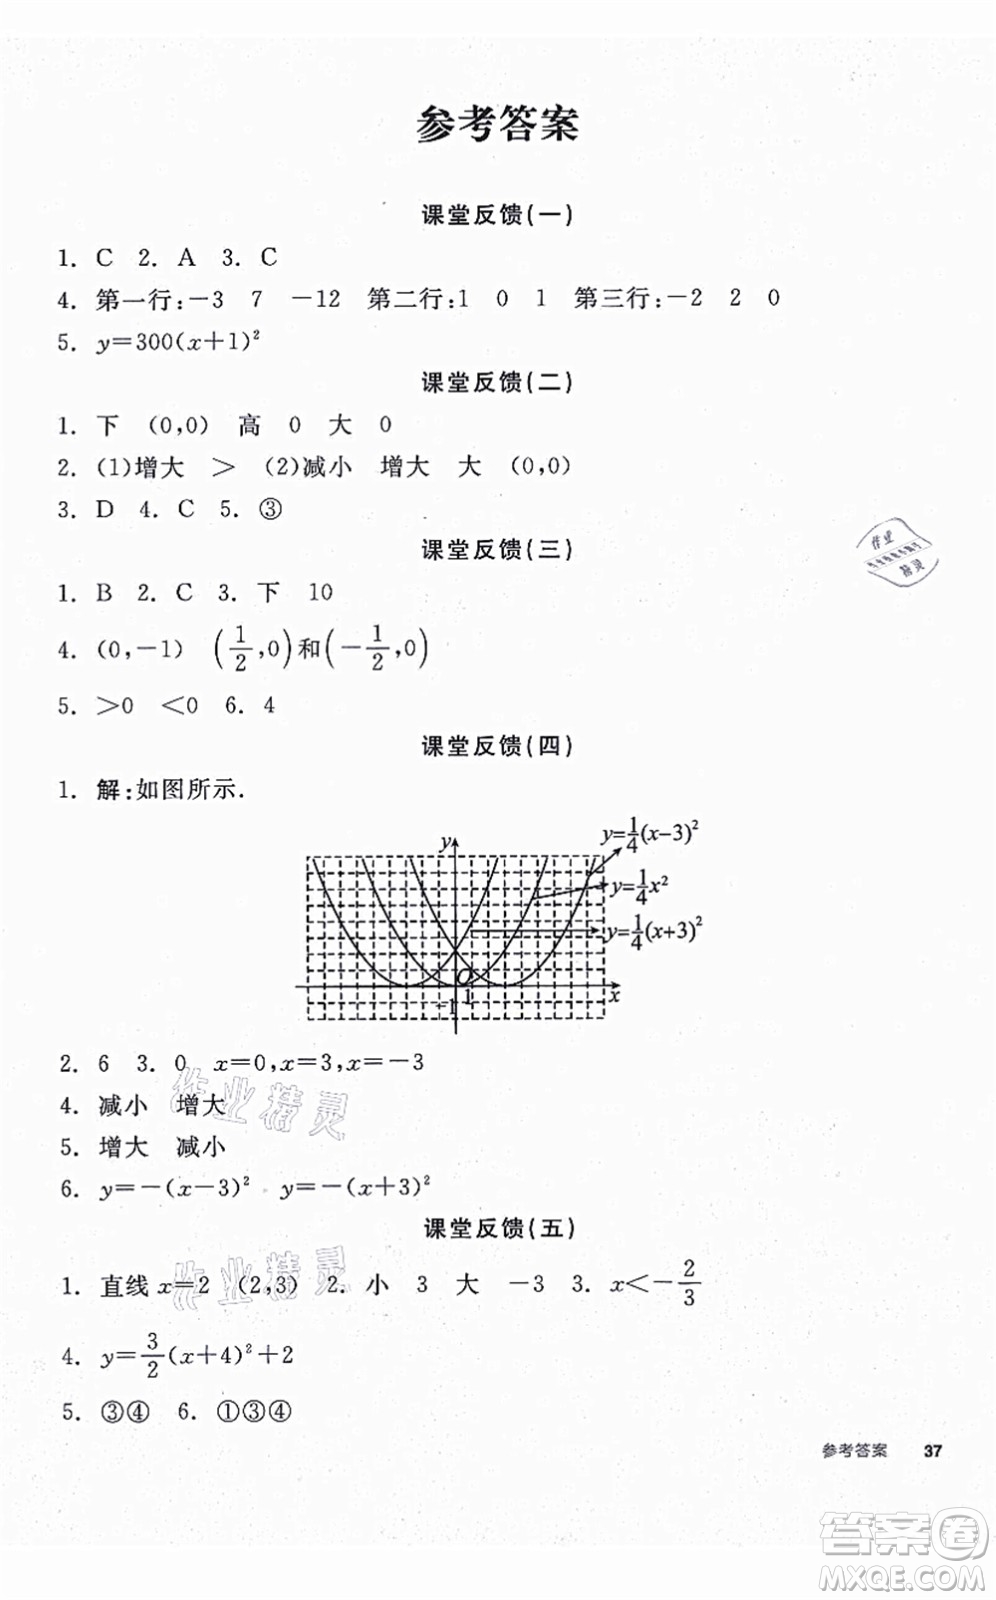 参考答案
课堂反馈(一)
1. C 2. A 3. C
4. 第一行:-3 7 -12 第二行:1 0 1 第三行:-2 2 0
5. y=300(x+1)²
课堂反馈(二)
1. 下 (0,0) 高 0 大 0
2. (1)增大 > (2)减小 增大 大 (0,0)
3. D 4. C 5. ③
课堂反馈(三)
1. B 2. C 3. 下 10
4. (0,-1) (1/2,0)和(-1/2,0)
5. >0 <0 6. 4
课堂反馈(四)
1. 解:如图所示.
y
y=1/4(x-3)²
y=1/4x²
y=1/4(x+3)²
O
-1 1
x
2. 6 3. 0 x=0,x=3,x=-3
4. 减小 增大
5. 增大 减小
6. y=-(x-3)² y=-(x+3)²
课堂反馈(五)
1. 直线 x=2 (2,3) 2. 小 3 大 -3 3. x<-2/3
4. y=3/2(x+4)²+2
5. ③④ 6. ①③④
参考答案 37
作业
精灵
作业精灵
作业精灵
答案卷
MXQE.COM